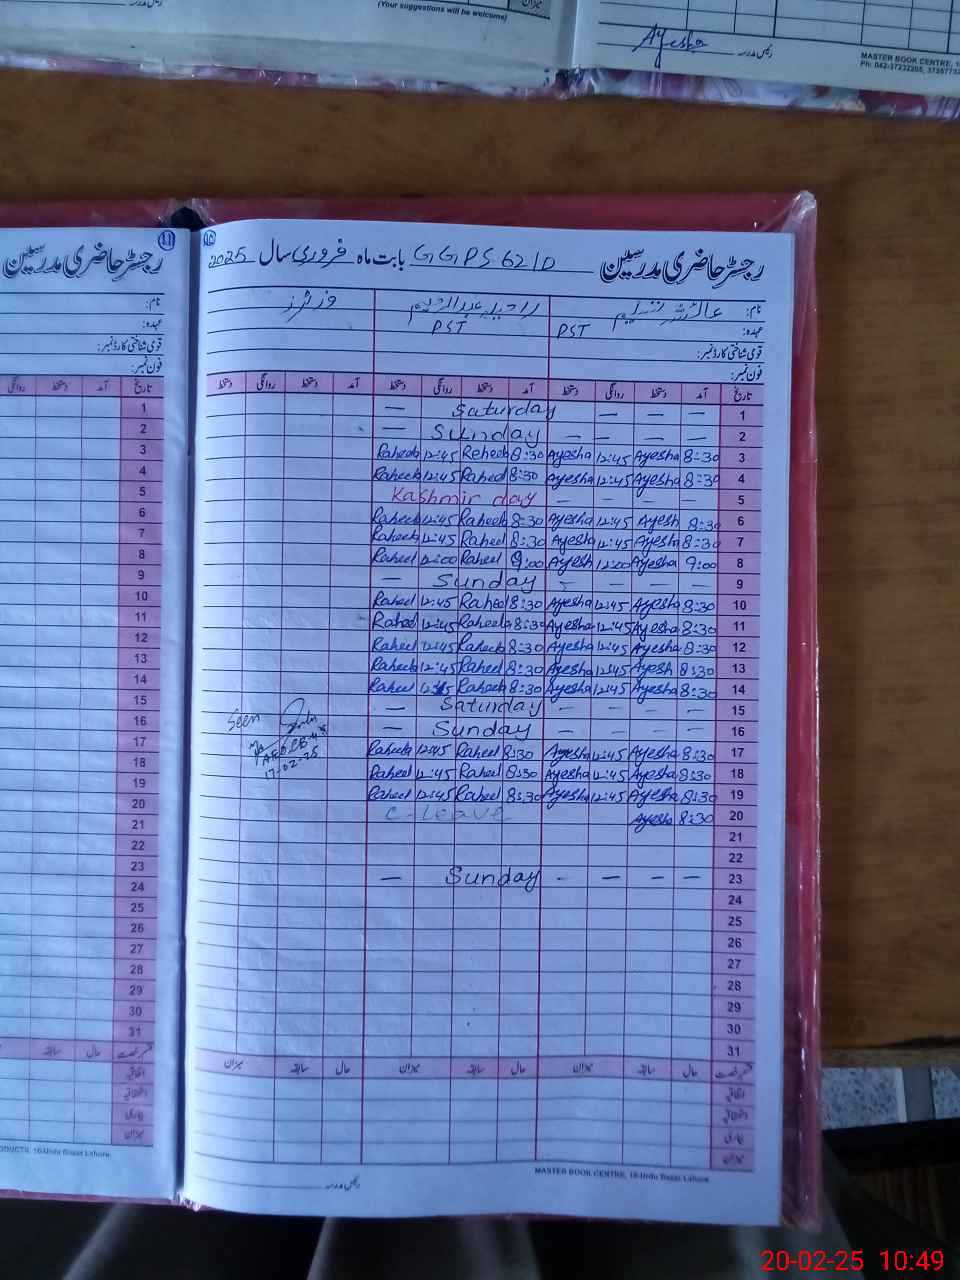 (Your suggestions will be welcome)
میزان
رئیس مدرسہ
Ayesha رئیس مدرسہ
MASTER BOOK CENTRE, 1
Ph: 042-37232205,
رجسٹر حاضری مدرسین
11
نام:
عہدہ:
قومی شناختی کارڈ نمبر:
فون نمبر:
تاریخ آمد دستخط روانگی
1
2
3
4
5
6
7
8
9
10
11
12
13
14
15
16
17
18
19
20
21
22
23
24
25
26
27
28
29
30
31
حال سابقہ
اتفاقیہ
استحقاقیہ
بیماری
میزان
ODUCTS, 16-Urdu Bazar Lahore.
رجسٹر حاضری مدرسین GGPS 62/D بابت ماہ فروری سال 2025
نام: عائشہ تسلیم راحیلہ عبدالرحیم وزیٹرز
عہدہ: PST PST
قومی شناختی کارڈ نمبر:
فون نمبر:
تاریخ آمد دستخط روانگی دستخط آمد دستخط روانگی دستخط آمد دستخط روانگی دستخط
— Saturday — — — 1
— Sunday — — — 2
Raheela 12:45 Raheela 8:30 Ayesha 12:45 Ayesha 8:30 3
Raheela 12:45 Raheel 8:30 Ayesha 12:45 Ayesha 8:30 4
Kashmir day — — — — 5
Raheela 12:45 Raheela 8:30 Ayesha 12:45 Ayesh 8:30 6
Raheela 12:45 Raheel 8:30 Ayesha 12:45 Ayesha 8:30 7
Raheel 12:00 Raheel 9:00 Ayesh 12:00 Ayesha 9:00 8
— Sunday — — — — 9
Raheel 12:45 Raheel 8:30 Ayesha 12:45 Ayesha 8:30 10
Raheel 12:45 Raheela 8:30 Ayesha 12:45 Ayesha 8:30 11
Raheel 12:45 Raheela 8:30 Ayesha 12:45 Ayesha 8:30 12
Raheela 12:45 Raheel 8:30 Ayesha 12:45 Ayesh 8:30 13
Raheel 12:45 Raheela 8:30 Ayesha 12:45 Ayesha 8:30 14
— Saturday — — — — 15
Seen — Sunday — — — — 16
Raheela 12:45 Raheel 8:30 Ayesha 12:45 Ayesha 8:30 17
17-02-25 Raheel 12:45 Raheel 8:30 Ayesha 12:45 Ayesha 8:30 18
Raheel 12:45 Raheel 8:30 Ayesha 12:45 Ayesha 8:30 19
C-Leave Ayesha 8:30 20
21
22
— Sunday — — — — 23
24
25
26
27
28
29
30
31
حال سابقہ میزان حال سابقہ میزان حال سابقہ میزان
اتفاقیہ
استحقاقیہ
بیماری
میزان
MASTER BOOK CENTRE, 16-Urdu Bazar Lahore.
رئیس مدرسہ
20-02-25 10:49